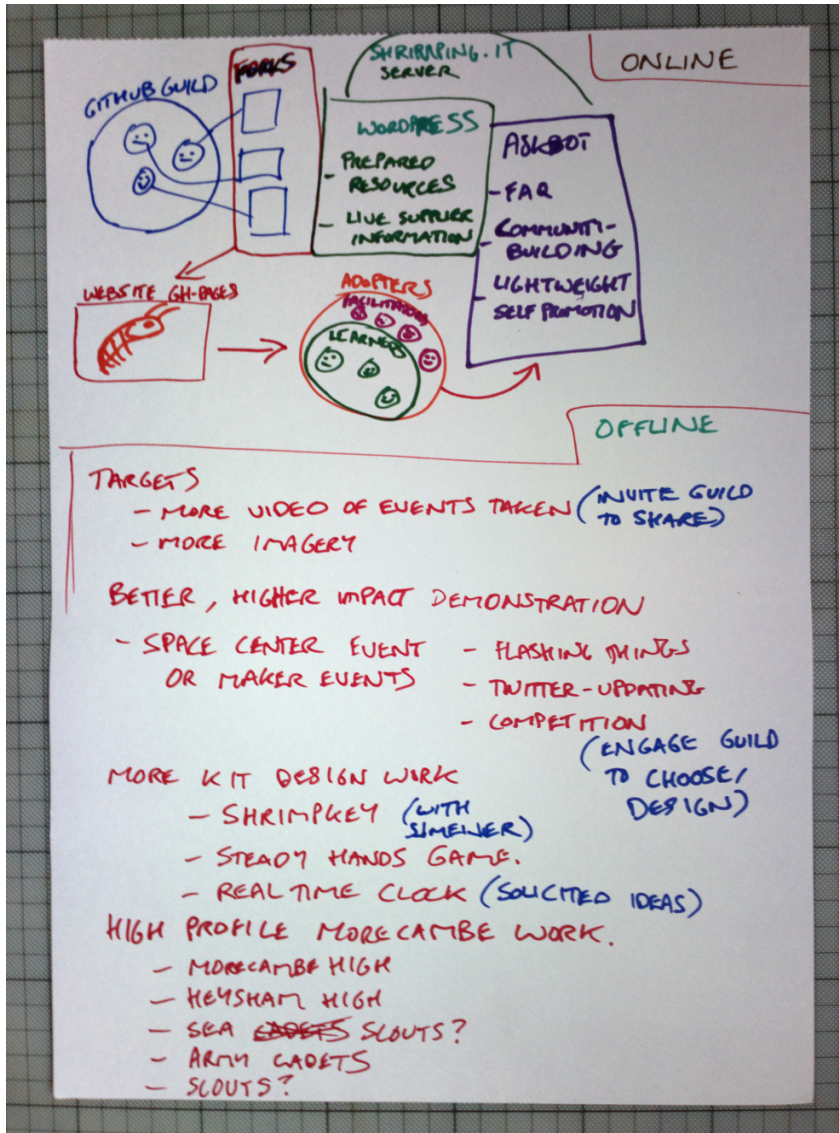 ONLINE
GITHUB GUILD
FORKS
SHRIMPING.IT
SERVER
WORDPRESS
- PREPARED
RESOURCES
- LIVE SUPPLIER
INFORMATION
ASKBOT
- FAQ
- COMMUNITI-
BUILDING
- LIGHTWEIGHT
SELF PROMOTION
WEBSITE GH-PAGES
ADOPTERS
FACILITATORS
LEARNERS
OFFLINE
TARGETS
- MORE VIDEO OF EVENTS TAKEN (INVITE GUILD
TO SHARE)
- MORE IMAGERY
BETTER, HIGHER IMPACT DEMONSTRATION
- SPACE CENTER EVENT
OR MAKER EVENTS
- FLASHING THINGS
- TWITTER-UPDATING
- COMPETITION
(ENGAGE GUILD
TO CHOOSE/
DESIGN)
MORE KIT DESIGN WORK
- SHRIMPKEY (WITH
SJMEINER)
- STEADY HANDS GAME.
- REAL TIME CLOCK (SOLICITED IDEAS)
HIGH PROFILE MORECAMBE WORK.
- MORECAMBE HIGH
- HEYSHAM HIGH
- SEA CADETS SCOUTS?
- ARMY CADETS
- SCOUTS?